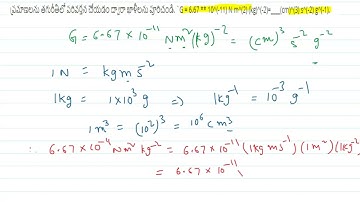 ప్రమాణాలను తగినరీతిలో పరివర్తన చేయడం ద్వారా ఖాళీలను పూరించండి. `G = 6.67 ** 10^(-11) N m^(2) (kg)^(-2)=___(cm)^(3) s^(-2) g^(-1).
G = 6.67 × 10⁻¹¹ Nm² (kg)⁻² = (cm)³ s⁻² g⁻²
1N = kg m s⁻²
1kg = 1×10³ g ⇒ 1kg⁻¹ = 10⁻³ g⁻¹
1m³ = (10²)³ = 10⁶ cm³
∴ 6.67 × 10⁻⁴ Nm² kg⁻² = 6.67×10⁻¹¹ (1kg ms⁻¹) (1m²) (1kg⁻
= 6.67 × 10⁻¹¹ (